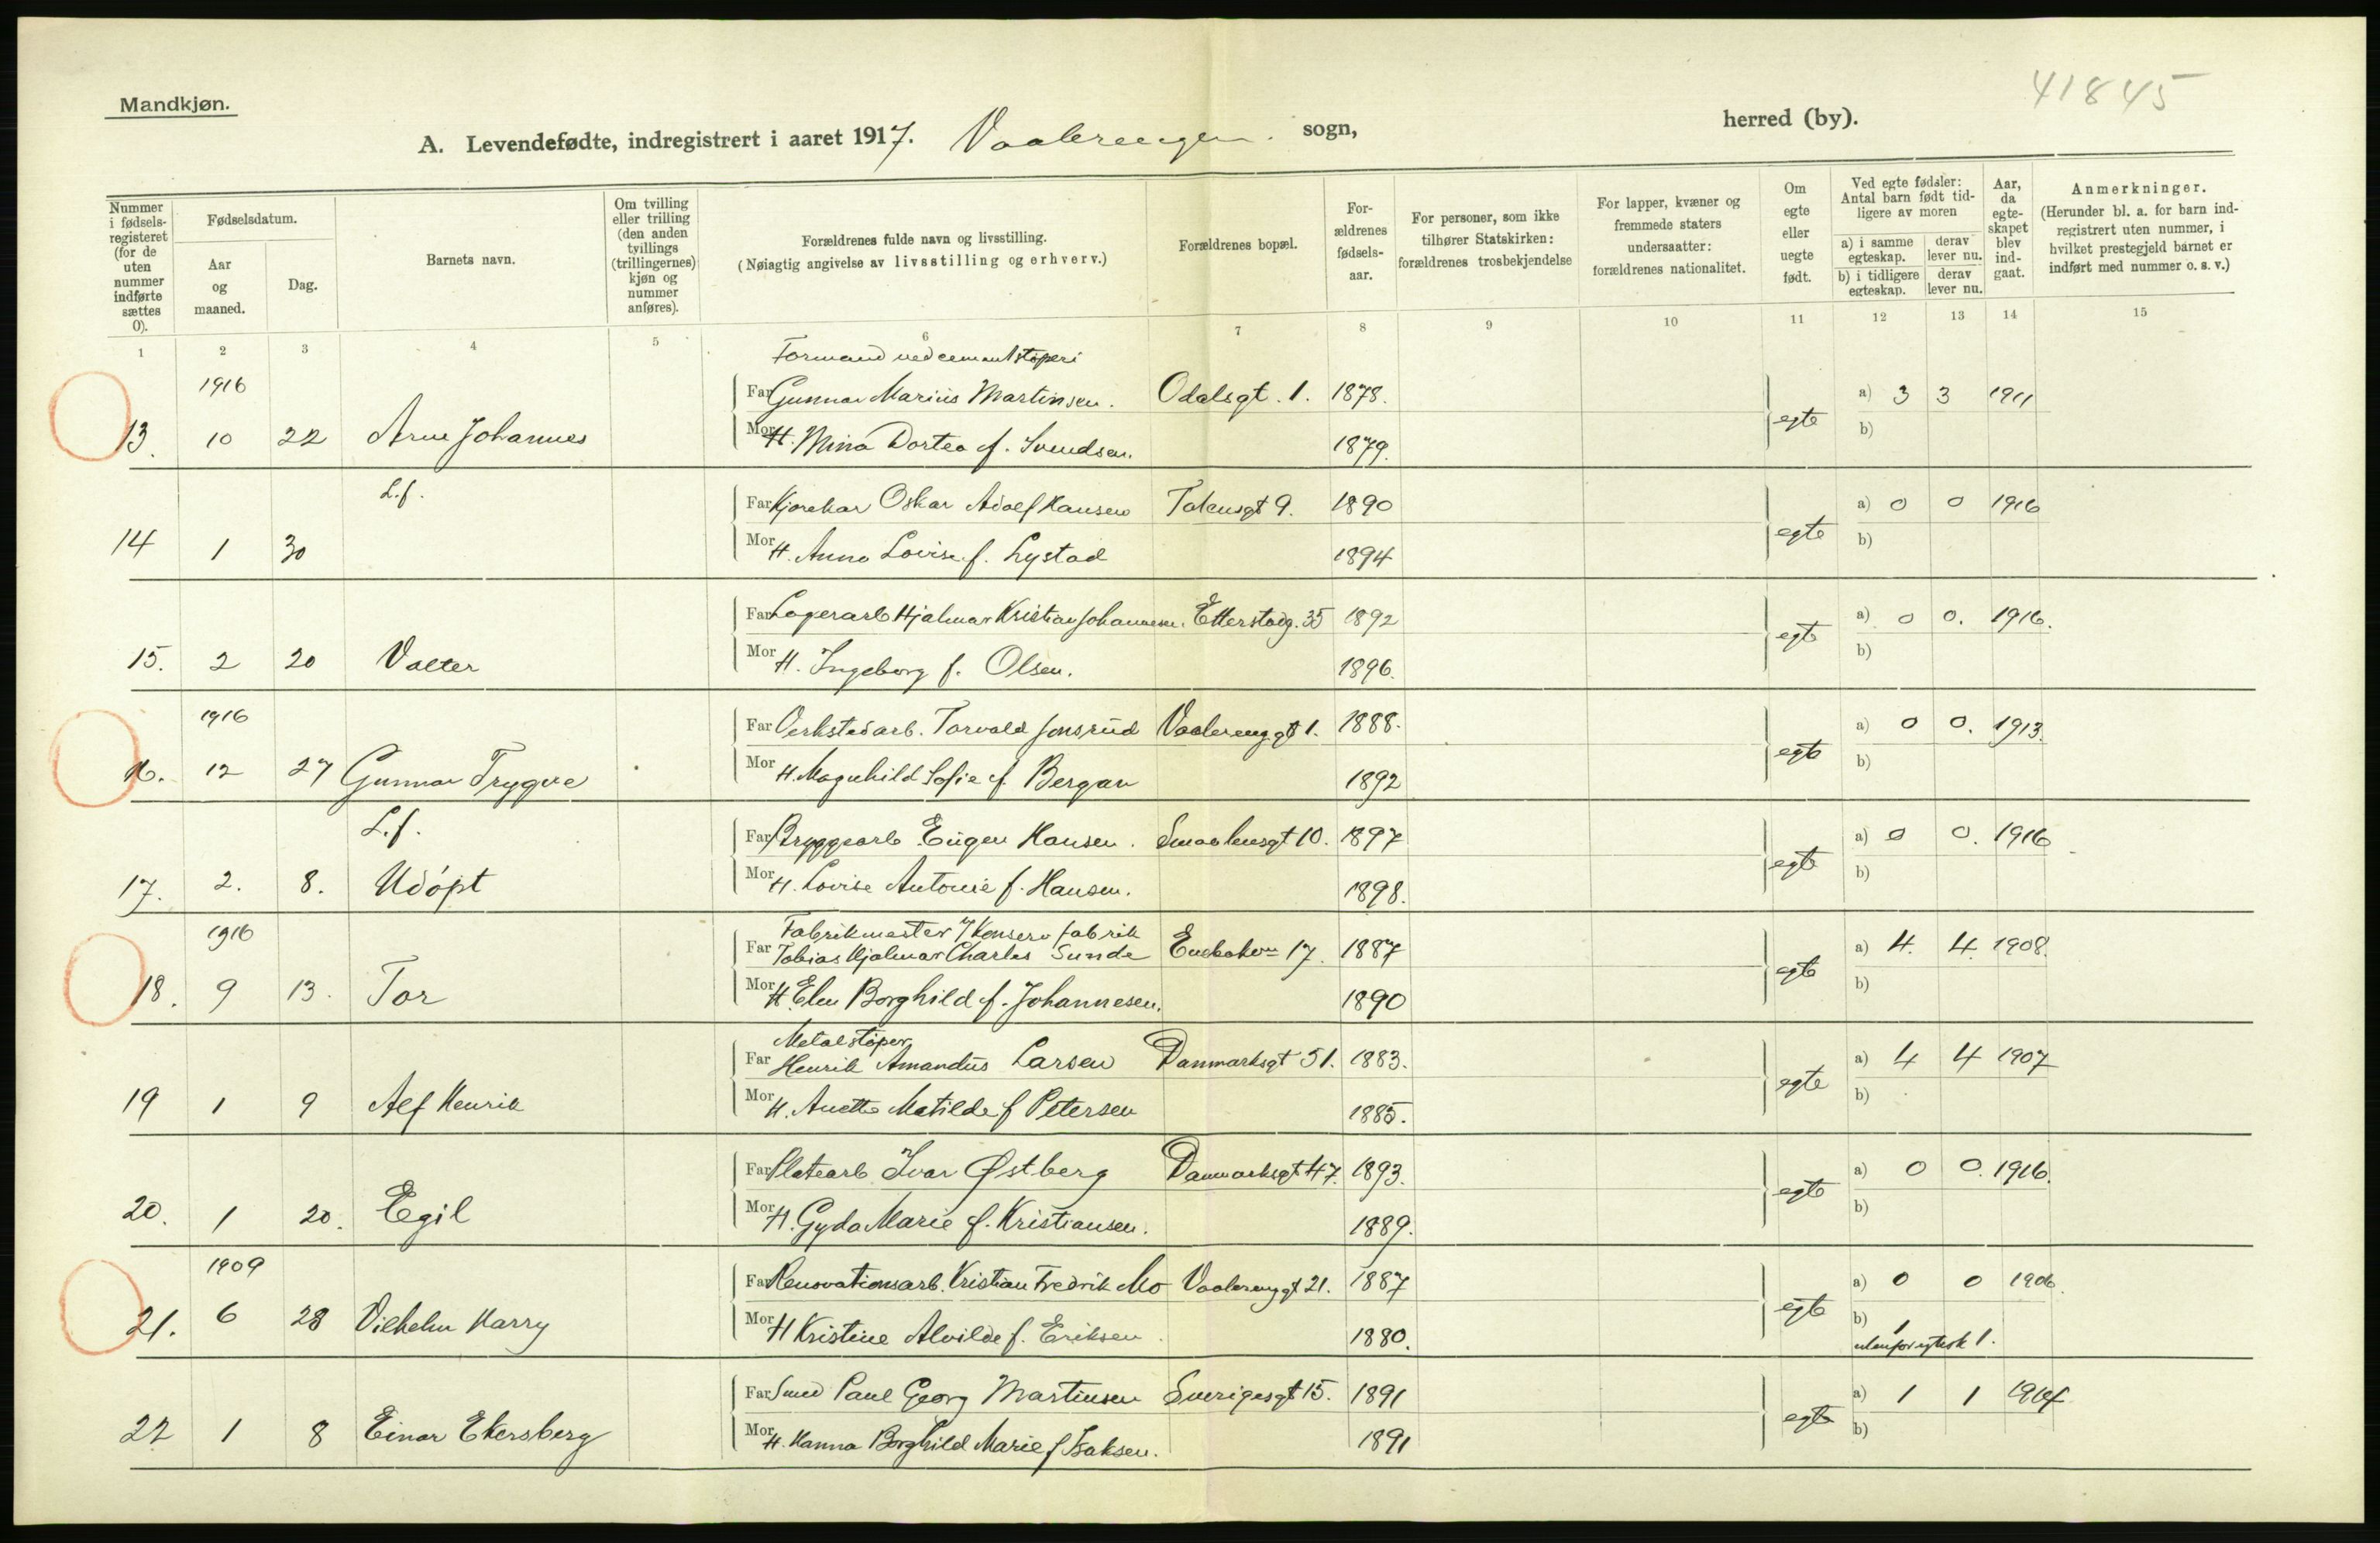 Mandkjøn.
41845
A. Levendefødte, indregistrert i aaret 1917. Vaalerengen sogn, herred (by).
Nummer i fødselsregisteret (for de uten nummer indførte sættes 0).
Fødselsdatum.
Aar og maaned.
Dag.
Barnets navn.
Om tvilling eller trilling (den anden tvillings (trillingernes) kjøn og nummer anføres).
Forældrenes fulde navn og livsstilling.
(Nøiagtig angivelse av livsstilling og erhverv.)
Forældrenes bopæl.
Forældrenes fødselsaar.
For personer, som ikke tilhører Statskirken: forældrenes trosbekjendelse
For lapper, kvæner og fremmede staters undersaatter: forældrenes nationalitet.
Om egte eller uegte født.
Ved egte fødsler: Antal barn født tidligere av moren
a) i samme egteskap. derav lever nu.
b) i tidligere egteskap. derav lever nu.
Aar, da egteskapet blev indgaat.
Anmerkninger.
(Herunder bl. a. for barn indregistrert uten nummer, i hvilket prestegjeld barnet er indført med nummer o. s. v.)
1 2 3 4 5 6 7 8 9 10 11 12 13 14 15
Formand ved cementstøperi
1916 Far Gunnar Marius Martinsen. Odalsgt. 1. 1878. a) 3 3 1911
13. 10 22 Arne Johannes Mor H. Mina Dortea f. Svendsen. 1879. egte b)
L.f. Far Kjørekar Oskar Adolf Hansen Totensgt 9. 1890 a) 0 0 1916
14 1 30 Mor H. Anna Lovise f. Lystad 1894 egte b)
Far Lagerarb Hjalmar Kristian Johannesen. Etterstadg. 35 1892 a) 0 0. 1916.
15. 2 20 Valter Mor H. Ingeborg f. Olsen. 1896. egte b)
1916 Far Verkstedarb. Torvald Jonsrud Vaalerenggt 1. 1888. a) 0 0. 1913.
16. 12 27 Gunnar Trygve Mor H. Magnhild Sofie f. Bergan 1892 egte b)
L.f. Far Bryggearb Eugen Hansen. Smaalensgt 10. 1897 a) 0 0. 1916
17. 2. 8. Udøpt Mor H. Lovise Antonie f. Hansen. 1898. egte b)
Fabrikmester / Konserv fabrik
1916 Far Tobias Hjalmar Charles Sunde 17. 1887 a) 4. 4. 1908.
18. 9 13. Tor Mor H. Elen Borghild f. Johannesen. 1890 egte b)
Metalstøper
Far Henrik Amandus Larsen Danmarksgt 51. 1883. a) 4 4 1907
19 1 9 Alf Henrik Mor H. Anette Matilde f Petersen 1885. egte b)
Far Platearb Ivar Østberg Danmarksgt 47. 1893. a) 0 0. 1916.
20. 1 20. Egil Mor H. Gyda Marie f. Kristiansen. 1889. egte b)
1909 Far Renovationsarb. Kristian Fredrik Mo Vaalerenggt 21. 1887 a) 0 0 1906.
21. 6 28 Vilhelm Harry Mor H Kristine Alvilde f. Eriksen. 1880. egte b) 1
utenfor egtesk 1.
Far Smed Paul Georg Martinsen Sverigesgt 15. 1891 a) 1 1 1914
22 1 8 Einar Ekersberg Mor H. Hanna Borghild Marie f Isaksen. 1891 egte b)